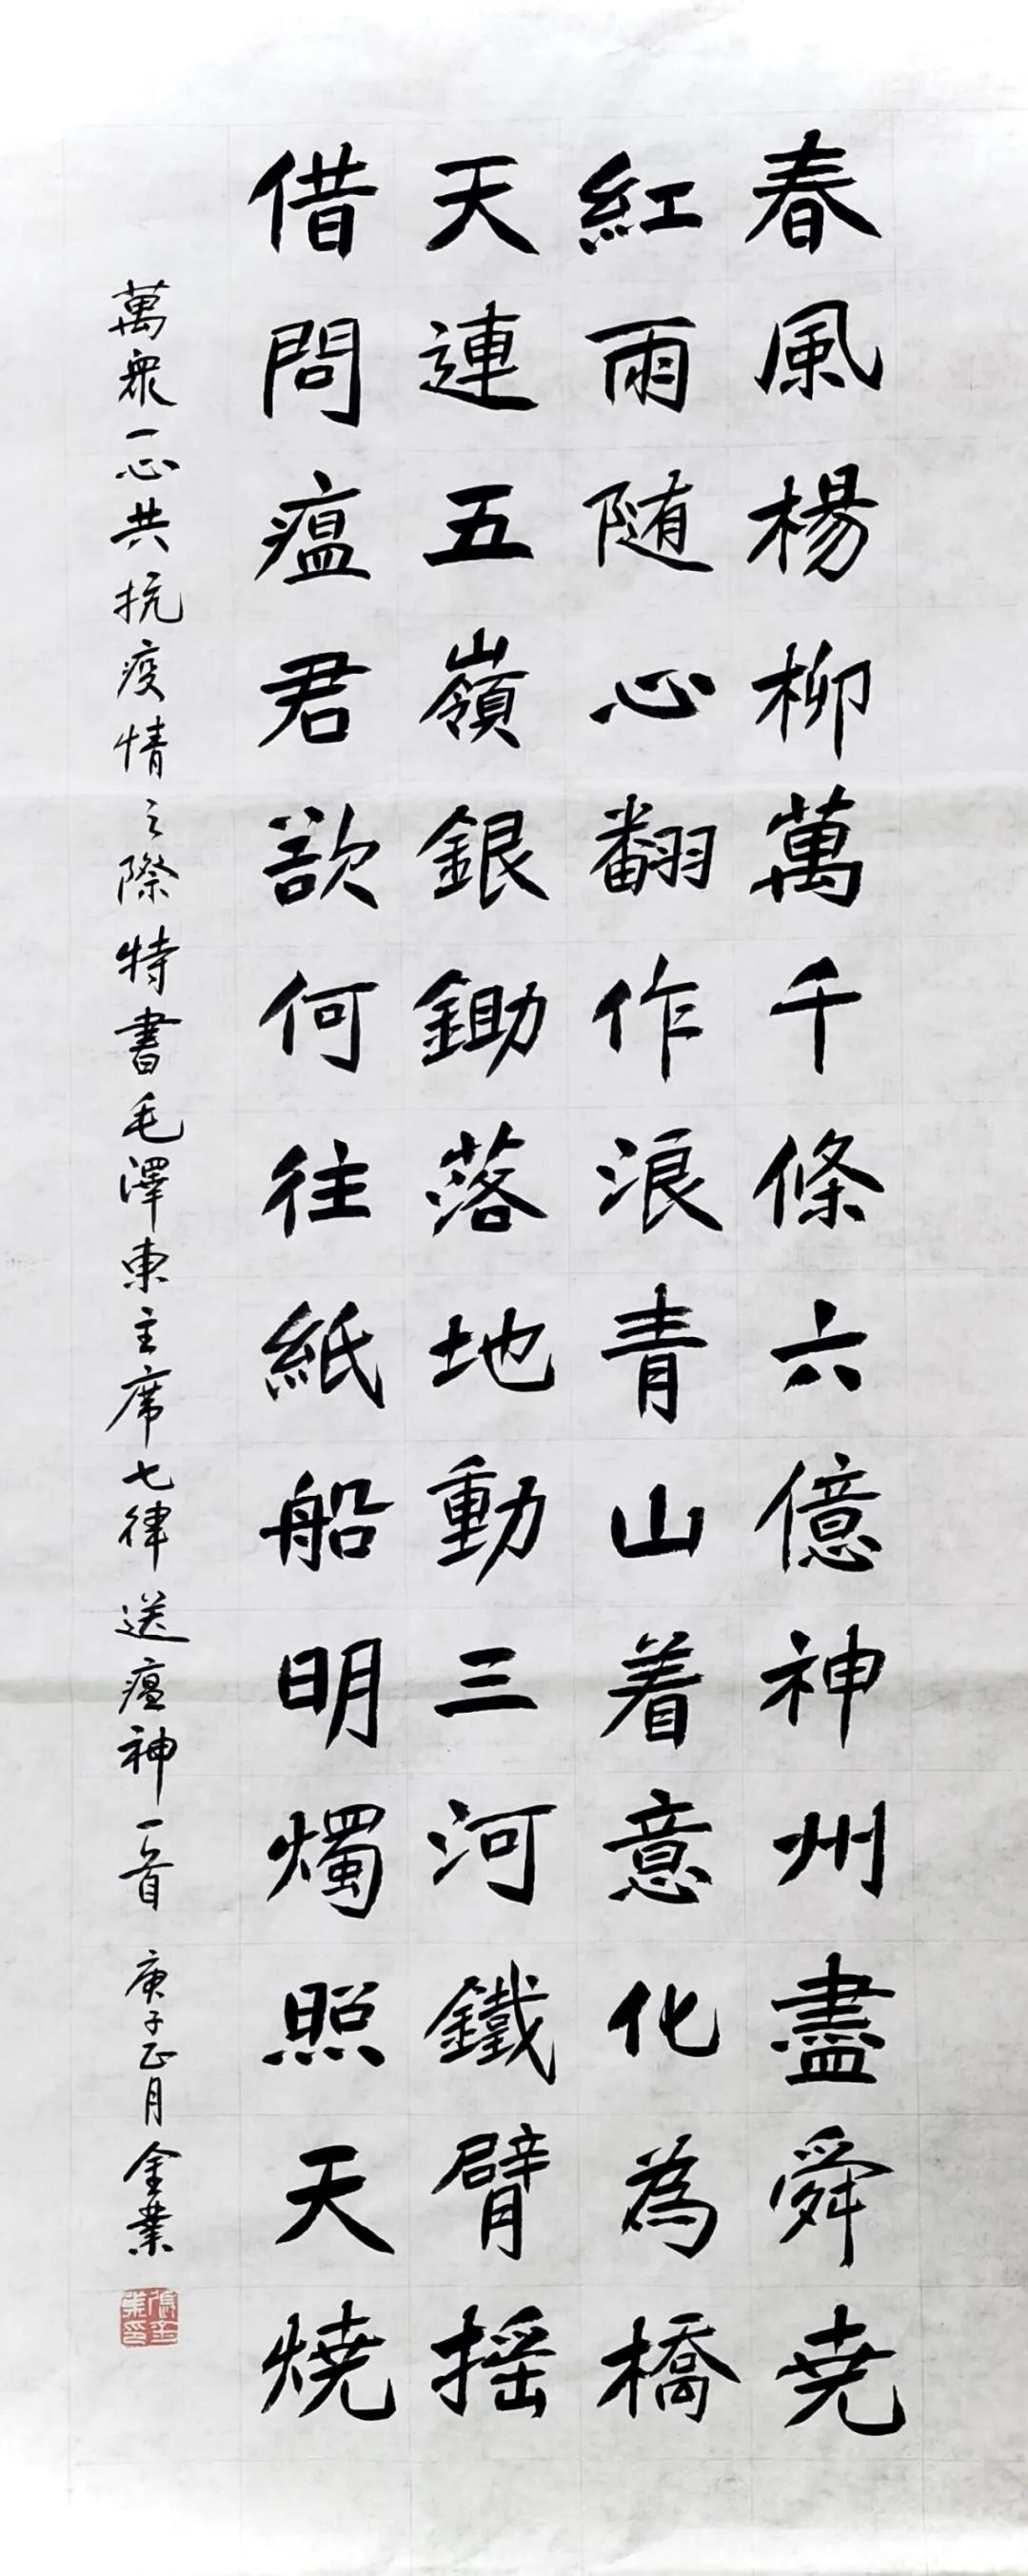 春風楊柳萬千條六億神州盡舜尭
紅雨随心翻作浪青山着意化為橋
天連五嶺銀鋤落地動三河鐵臂摇
借問瘟君欲何往紙船明燭照天焼
萬衆一心共抗疫情之際特書毛澤東主席七律送瘟神一首 庚子正月 金業